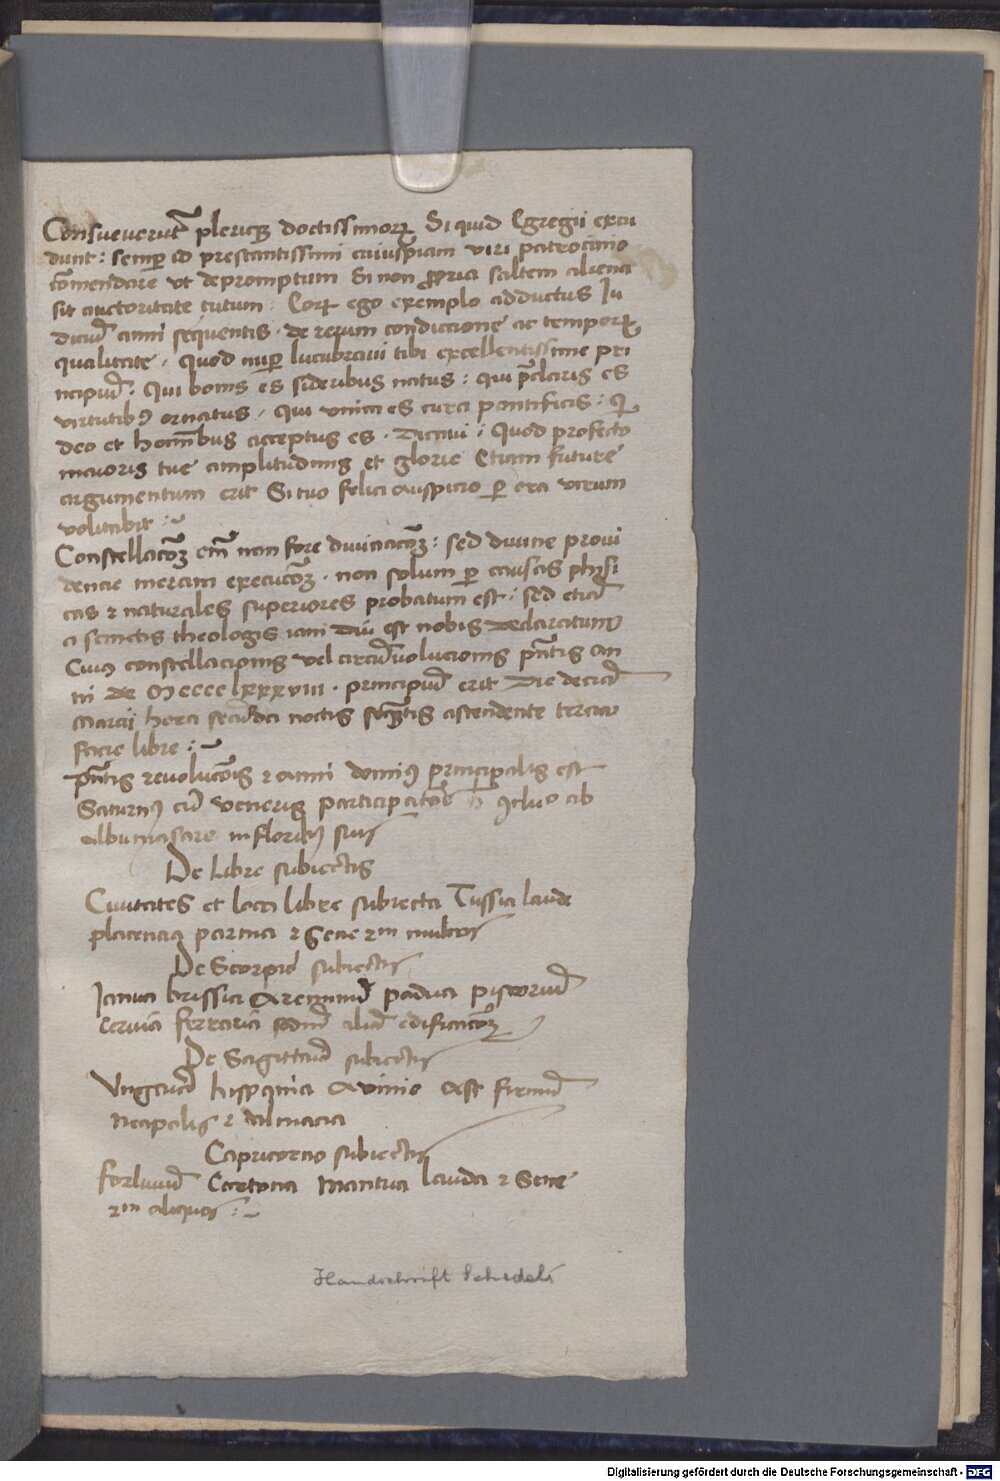 Consueverūt pleriqꝫ doctissimoꝝ Si quid Egregii excu
dunt : semꝑ id prestantissimi cuiuspiam viri patrocinio
cōmendare ut depromptum Si non ꝓpria saltem aliena
sit auctoritate tutum : Eoꝝ ego exemplo adductus Iu
diciū anni sequentis · de rerum condicione ac tempoꝝ
qualitate · quod nuꝑ lucubravi tibi excellentissime pri
ncipiū : Qui bonis es sideribus natus : qui p̄claris es
virtutibꝰ ornatus · qui unica es cura pontificis : q
deo et hominibus acceptus es · dicavi : Quod profecto
maioris tue amplitudinis et glorie Etiam future
argumentum erit Si tuo felici auspicio ꝑ ora virum
volitabit :
Constellacōꝫ em̄ non fore divinacōꝫ : sed divine provi
dencie meram execucōꝫ · non solum ꝑ causas physi
cas ⁊ naturales superiores probatum est : sed etiā
a sanctis theologis iam diu est nobis declaratum
Cuiꝰ constellacionis vel circūvolucionis p̄ntis an
ni de Mcccclxxxviii · principiū erit die decia
Marcii hora secūda noctis seqn̄tis ascendente tercia
facie libre :
p̄ntis revolucōis ⁊ anni dominꝰ principalis est
Saturnꝰ cū veneris participatōe ꝯcluso ab
albumasare in floribꝰ suis
De Libre subiectis
Civitates et loca libre subiecta Tussia laude
placencia parma ⁊ Sene ⁊m multos
De Scorpio subiectis
Ianua brissia Areminū padua pistoriū
cervia ferraria scdm̄ aliā edificacōꝫ
De Sagittario subiectis
Ungaria hispania Avinio Ast firmū
neapolis ⁊ dalmacia
Capricorno subiectis
forliviū Cortona Mantua lauda ⁊ Sene
⁊m aliquos :
Handschrift Schedels
Digitalisierung gefördert durch die Deutsche Forschungsgemeinschaft - DFG